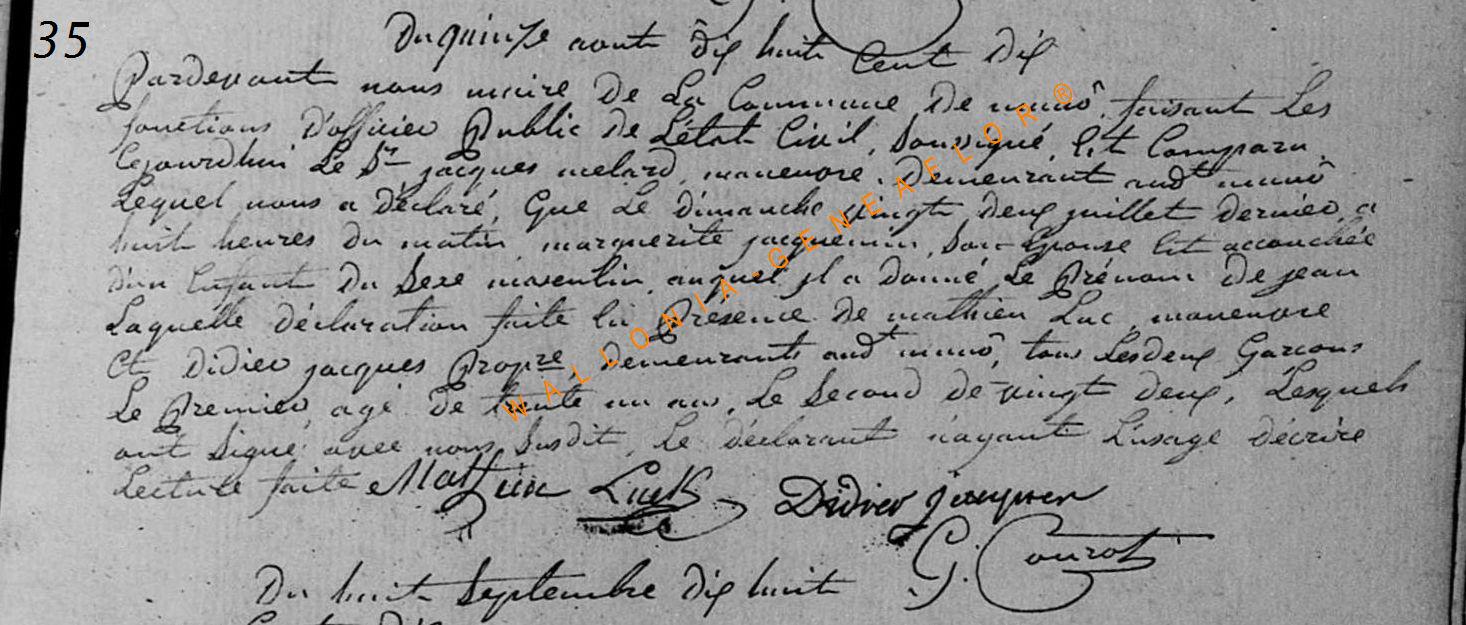 35
Du quinze aout dix huit Cent dix
Pardevant nous maire de La Commune de muno, faisant Les
fonctions d'officier Public de L'état Civil, Soussigné, Est Comparu
Cejourdhui Le Sr jacques melard, manoevre, Demeurant audt muno
Lequel nous a Déclaré, Que Le dimanche vingt deux juillet dernier, a
huit heures du matin marguerite jacquemin, Son Epouse Est accouchée
d'un Enfant du Sexe masculin, auquel il a donné Le Prénom de jean
Laquelle déclaration faite En Présence de mathieu Luc, manoevre
Et Didier jacques Propre, demeurants audt muno, tous Lesdeux Garcons
Le Premier agé de trente un ans, Le Second de vingt deux, Lesquels
ont Signé avec nous Susdit, Le déclarant n'ayant L'usage décrire
Lecture faite Mathieu Luck Didier jacques
G. Courot
Du huit Septembre dix huit
WALLONIA-GENEAFLOR®